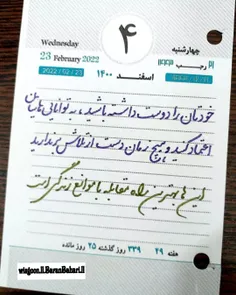 Wednesday
۴
چهارشنبه
23 February 2022
رجب
2022 / 02 / 23
اسفند ۱۴۰۰
خودتان را دوست داشته باشید، به توانایی هایتان
اعتماد کنید و هیچ زمان دست از تلاش برندارید
این ها بهترین راه مقابله با موانع زندگی است
هفته ۴۹ ۳۳۹ روز گذشته ۲۵ روز مانده
wisgoon.ll.BaranBahari.ll